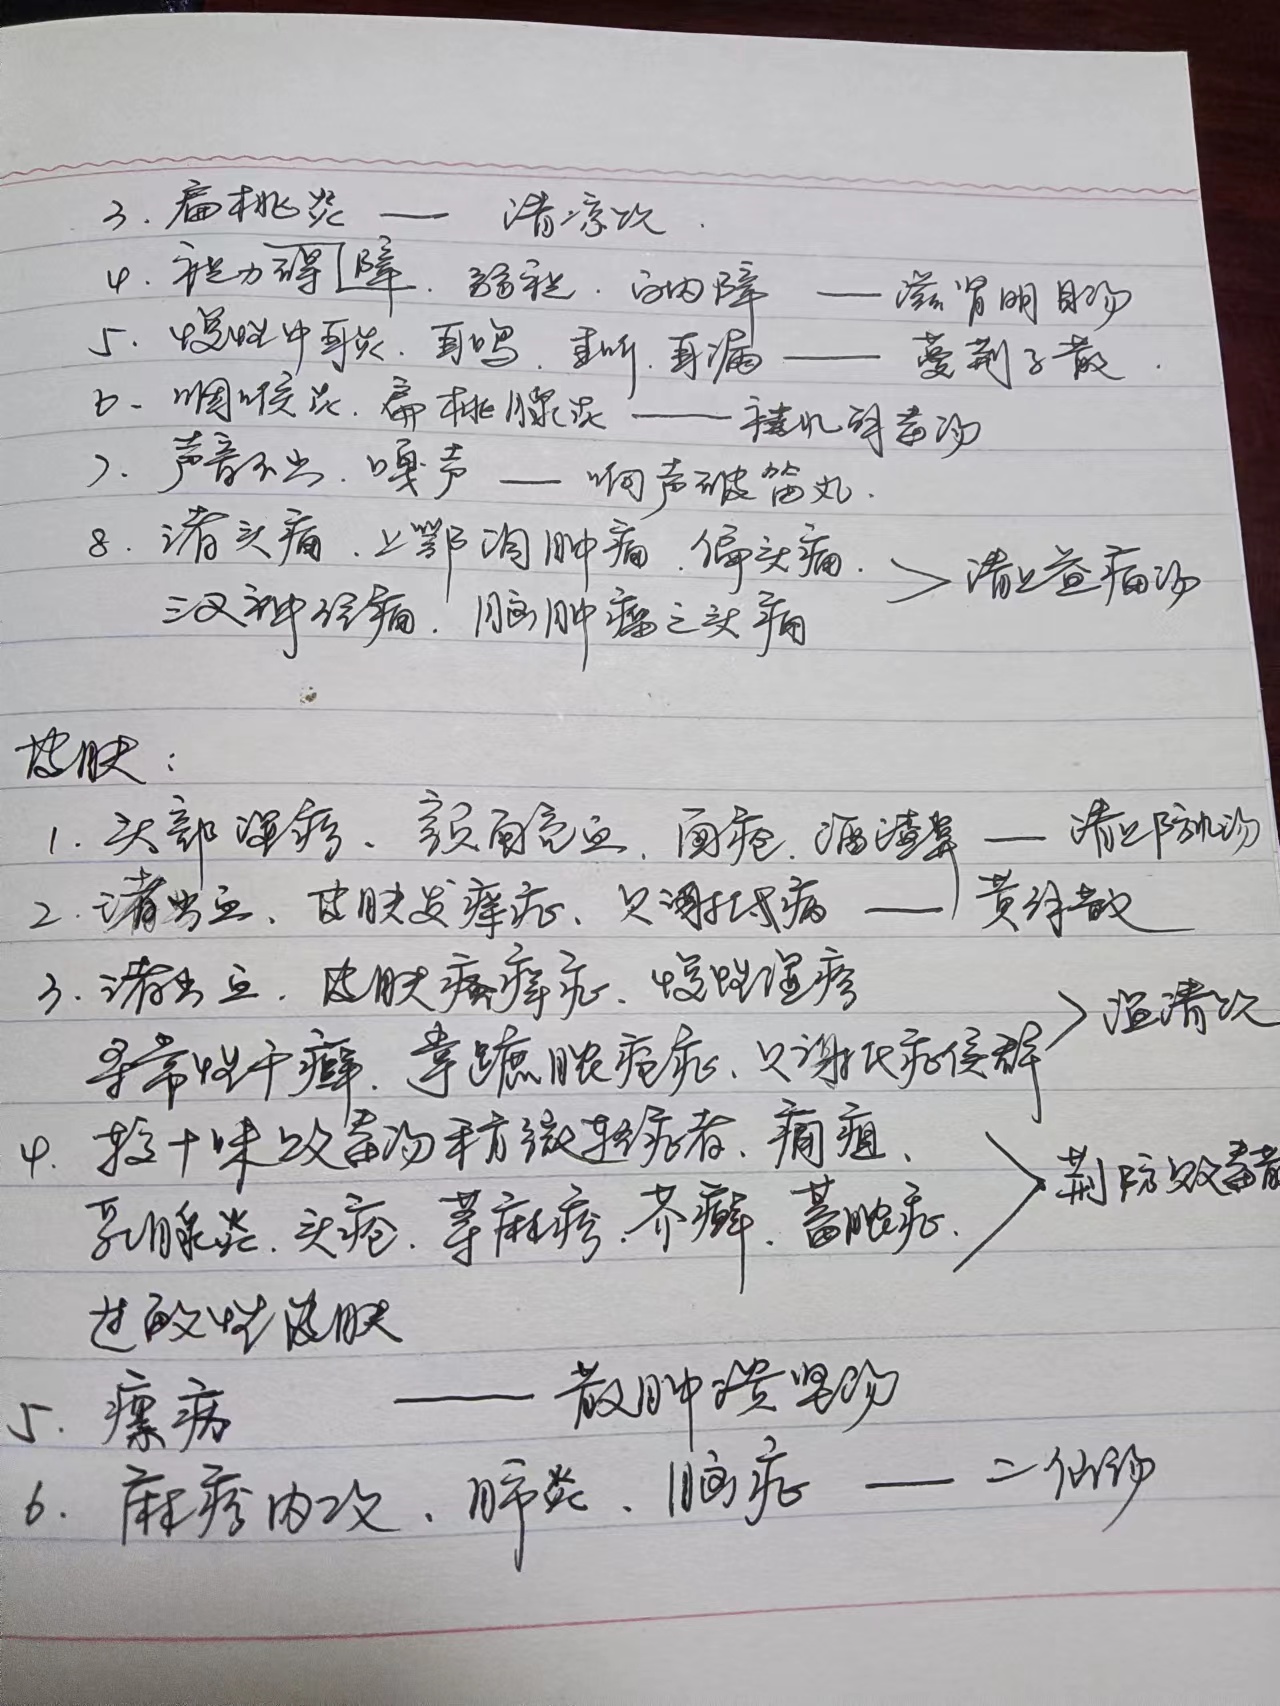 3. 扁桃炎 —— 清凉饮.
4. 视力障碍. 弱视. 白内障 —— 滋肾明目汤
5. 慢性中耳炎. 耳鸣. 重听. 耳漏 —— 蔓荆子散.
6. 咽喉炎. 扁桃腺炎 —— 祛风解毒汤
7. 声音不出. 嘎声 —— 响声破笛丸.
8. 诸头痛. 上鄂洞肿痛. 偏头痛. > 清上蠲痛汤
三叉神经痛. 脑肿瘤之头痛
皮肤:
1. 头部湿疹、颜面充血. 面疱. 酒渣鼻 —— 清上防风汤
2. 诸出血. 皮肤发痒症、只谢持病 —— 黄解散
3. 诸出血. 皮肤瘙痒症、慢性湿疹 > 温清饮
寻常性干癣. 掌蹠脓疱症、只谢氏症候群
4. 较十味败毒汤稍微轻症者、痈疽、 > 荆防败毒散
乳腺炎. 头疮. 荨麻疹. 芥癣. 蓄脓症.
过敏性皮肤
5. 瘰疬 —— 散肿溃坚汤
6. 麻疹内攻、肺炎、脑症 —— 二仙汤